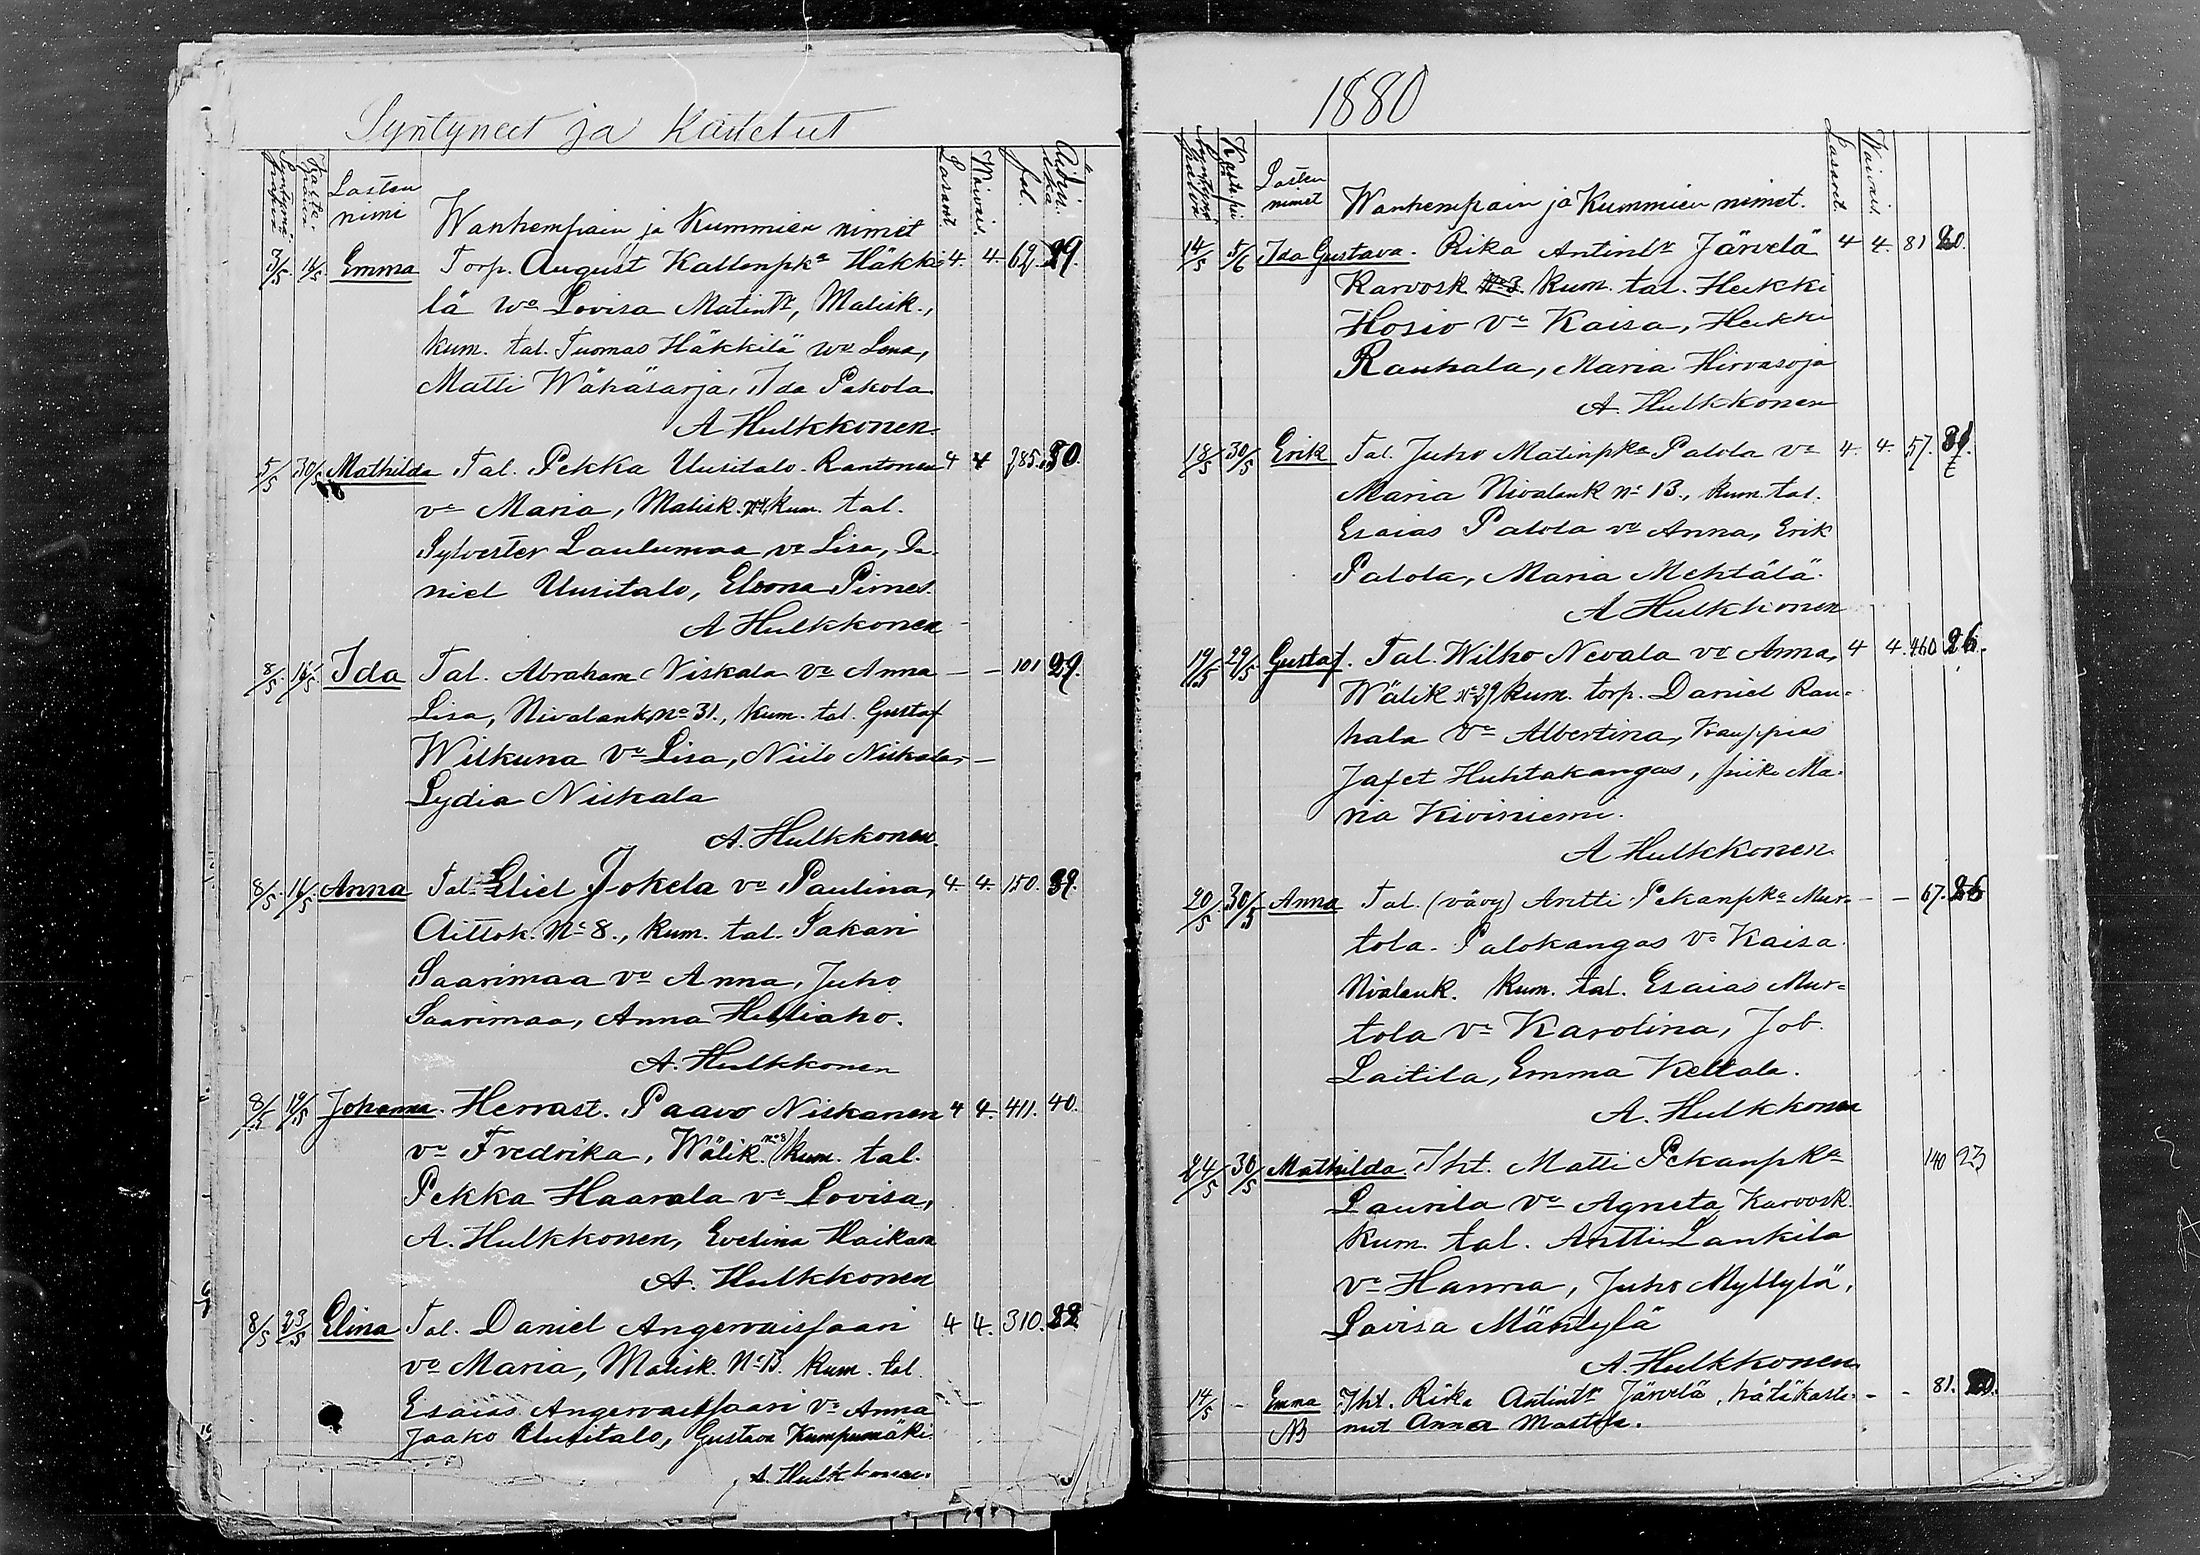 Syntyneet ja Kastetut
Syntymä päivä Kaste päivä Lasten nimi Wanhempain ja Kummien nimet Lasaret Waivais. fol. Äidin ikä
3/5 16/5 Emma Torp. August Kallenpka Häkki- 4. 4. 62. 29.
lä Wo Lovisa Matintr, Malisk.,
kum. tal. Tuomas Häkkilä Wo Lena,
Matti Wähäsarja, Ida Pakola
A Hulkkonen.
5/5 30/5 Mathilda Tal. Pekka Uusitalo-Rantonen 4 4 285. 30.
vo Maria, Malisk. kum. tal.
Sylvester Laulumaa vo Lisa, Da-
niel Uusitalo, Eleona Pirnes.
A Hulkkonen
8/5 16/5 Ida Tal. Abraham Niskala vo Anna — — 101 29.
Lisa, Nivalank No 31., kum. tal. Gustaf
Wilkuna vo Lisa, Niilo Niskala, —
Lydia Niskala
A. Hulkkonen.
8/5 16/5 Anna Tal. Eliel Jokela vo Paulina, 4. 4. 150. 39.
Aittok. No 8., kum. tal. Sakari
Saarimaa vo Anna, Juho
Saarimaa, Anna Helliaho.
A. Hulkkonen
8/5 19/5 Johanna. Herrast. Paavo Niskanen 4 4. 411. 40.
vo Fredrika, Wälik. no 8 kum. tal.
Pekka Haarala vo Lovisa,
A. Hulkkonen, Evelina Haikara
A. Hulkkonen
8/5 23/5 Elina Tal. Daniel Angervaissaari 4 4. 310. 22
vo Maria, Malisk. No 13. kum. tal.
Esaias Angervaissaari vo Anna
Jaako Uusitalo, Gustava Kumpumäki.
A. Hulkkonen.
1880
Syntymä päivä Kaste päi Lasten nimet Wanhempain ja Kummien nimet. Lasaret. Waivais.
14/5 5/6 Ida Gustava. Rika Antintr Järvelä 4 4. 81 20.
Karvosk No 3. kum. tal. Heikki
Hosio vo Kaisa, Heikki
Rauhala, Maria Hirvasoja
A. Hulkkonen
18/5 30/5 Erik Tal. Juho Matinpka Palola vo 4. 4. 57. 31.
Maria Nivalank No 13., kum. tal.
Esaias Palola vo Anna, Erik
Palola, Maria Mehtälä.
A Hulkkonen
19/5 29/5 Gustaf. Tal. Wilho Nevala vo Anna, 4 4. 460 26.
Wälik No 29 kum. torp. Daniel Rau-
hala vo Albertina, Kauppias
Jafet Huhtakangas, piika Ma-
ria Kiviniemi.
A Hulkkonen.
20/5 30/5 Anna Tal. (vävy) Antti Pekanpka Mur- — — 67. 26
tola-Palokangas vo Kaisa.
Nivalank. kum. tal. Esaias Mur-
tola vo Karolina, Job
Laitila, Emma Keltala.
A. Hulkkonen
24/5 30/5 Mathilda. Iht. Matti Pekanpka 140 23
Laurila vo Agneta Karvosk.
kum. tal. Antti Lankila
vo Hanna, Juho Myllylä,
Lovisa Mäntylä
A. Hulkkonen
14/5 — Emma Iht. Rika Antintr Järvelä, hätäkaste- — — 81. 20.
NB nut Anna Mastola.